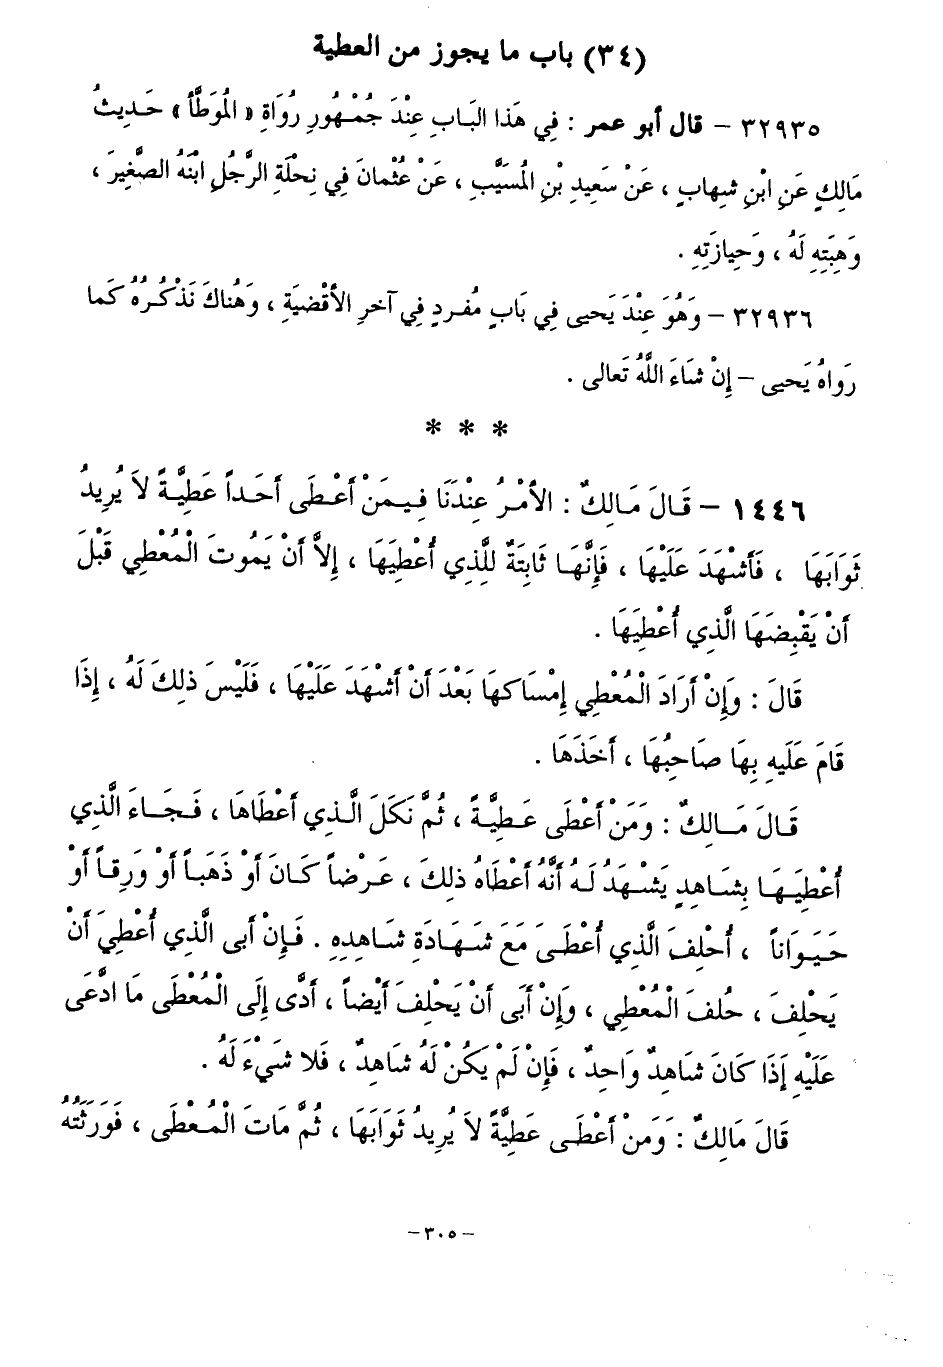 (٣٤) باب ما يجوز من العطية
٣٢٩٣٥ – قال أبو عمر : فِي هَذا البَابِ عِنْدَ جُمْهُورِ رُوَاةِ « المُوَطَّأ » حَدِيثُ
مَالِكٍ عَنِ ابْنِ شِهابٍ ، عَنْ سَعِيدِ بْنِ المُسَيَّبِ ، عَنْ عُثْمانَ فِي نِحْلَةِ الرَّجُلِ ابْنَهُ الصَّغِيرَ ،
وَهِبَتِهِ لَهُ ، وَحِيازَتِهِ .
٣٢٩٣٦ – وَهُوَ عِنْدَ يَحيى فِي بَابٍ مُفردٍ فِي آخرِ الأقْضيَةِ ، وَهُناكَ نَذْكُرُهُ كَما
رَواهُ يَحيى – إِنْ شَاءَ اللَّهُ تَعالى .
* * *
١٤٤٦ – قَالَ مَالِكٌ : الأَمْرُ عِنْدَنَا فِيمَنْ أَعْطَى أَحَداً عَطِيَّةً لاَ يُرِيدُ
ثَوَابَهَا ، فَأَشْهَدَ عَلَيْهَا ، فَإِنَّهَا ثَابَتَةٌ لِلَّذِي أُعْطِيَهَا ، إِلاَّ أَنْ يَمُوتَ الْمُعْطِي قَبْلَ
أَنْ يَقْبِضَهَا الَّذِي أُعْطِيَهَا .
قَالَ : وَإِنْ أَرَادَ الْمُعْطِي إِمْسَاكهَا بَعْدَ أَنْ أَشْهَدَ عَلَيْهَا ، فَلَيْسَ ذلِكَ لَهُ ، إِذَا
قَامَ عَلَيهِ بِهَا صَاحِبُهَا ، أَخَذَهَا .
قَالَ مَالِكٌ : وَمَنْ أَعْطَى عَطِيَّةً ، ثُمَّ نَكَلَ الَّذِي أَعْطَاهَا ، فَجَاءَ الَّذِي
أُعْطِيَهَا بِشَاهِدٍ يَشْهَدُ لَهُ أَنَّهُ أَعْطَاه ذلِكَ ، عَرْضاً كَانَ أَوْ ذَهَباً أَوْ وَرِقاً أَوْ
حَيَوَاناً ، أُحْلِفَ الَّذِي أُعْطَىَ مَعَ شَهَادَةِ شَاهِدِهِ . فَإِنْ أَبى الَّذِي أُعْطِيَ أَنْ
يَحْلِفَ ، حُلفَ الْمُعْطِي ، وَإِنْ أَبَى أَنْ يَحْلِفَ أَيْضاً ، أَدَّى إِلَى الْمُعْطَى مَا ادَّعَى
عَلَيْهِ إِذَا كَانَ شَاهِدٌ وَاحِدٌ ، فَإِنْ لَمْ يَكُنْ لَهُ شَاهِدٌ ، فَلا شَيْءَ لَهُ .
قَالَ مَالِكٌ : وَمَنْ أَعْطَى عَطِيَّةً لاَ يُرِيدُ ثَوَابَهَا ، ثُمَّ مَاتَ الْمُعْطَى ، فَوَرَثَتُهُ
–٣٠٥–